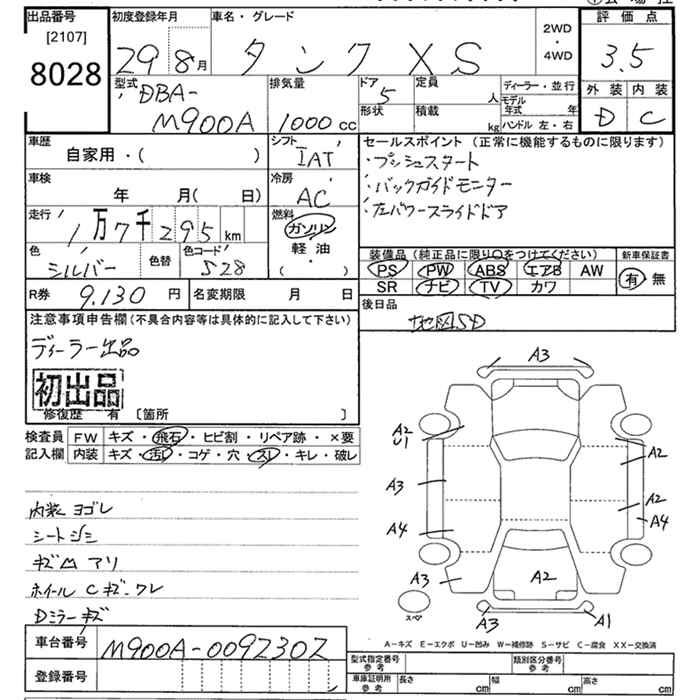 出品番号 初度登録年月 車名・グレード 2WD・4WD 評価点
[2107]
8028 29年 8月 タンク XS 3.5
型式 DBA-M900A 排気量 1000cc ドア 5 形状 定員 人 積載 kg ディーラー・並行 モデル年式 年 ハンドル 左・右 外装 D 内装 C
車歴 自家用・( ) シフト IAT セールスポイント (正常に機能するものに限ります)
・プッシュスタート
車検 年 月( 日) 冷房 AC ・バックガイドモニター
走行 1万7千295km 燃料 ガソリン 軽油 ( ・ ) ・左パワースライドドア
色 シルバー 色替 色コード S28 装備品 (純正品に限り○をつけてください) 新車保証書
PS PW ABS エアB AW 有・無
R券 9.130円 名変期限 月 日 SR ナビ TV カワ
注意事項申告欄 (不具合内容等は具体的に記入して下さい) 後日品
地図SD
ディーラー出品
初出品
修復歴 有 〔箇所 〕
検査員 FW キズ・飛石・ヒビ割・リペア跡・×要
記入欄 内装 キズ・汚レ・コゲ・穴・スレ・キレ・破レ
内装ヨゴレ
シートジミ
キズ凹アリ
ホイールCキズ・ワレ
Dミラーキズ
A3
A2
U1
A2
A3
A2
A4
A4
A3
A2
スペア
A3
A1
A-キズ E-エクボ U-凹み W-補修跡 S-サビ C-腐食 XX-交換済
車台番号 M900A-0092302
登録番号
型式指定番号 参考 類別区分番号 参考
車庫証明用 参考 長さ cm 幅 cm 高さ cm